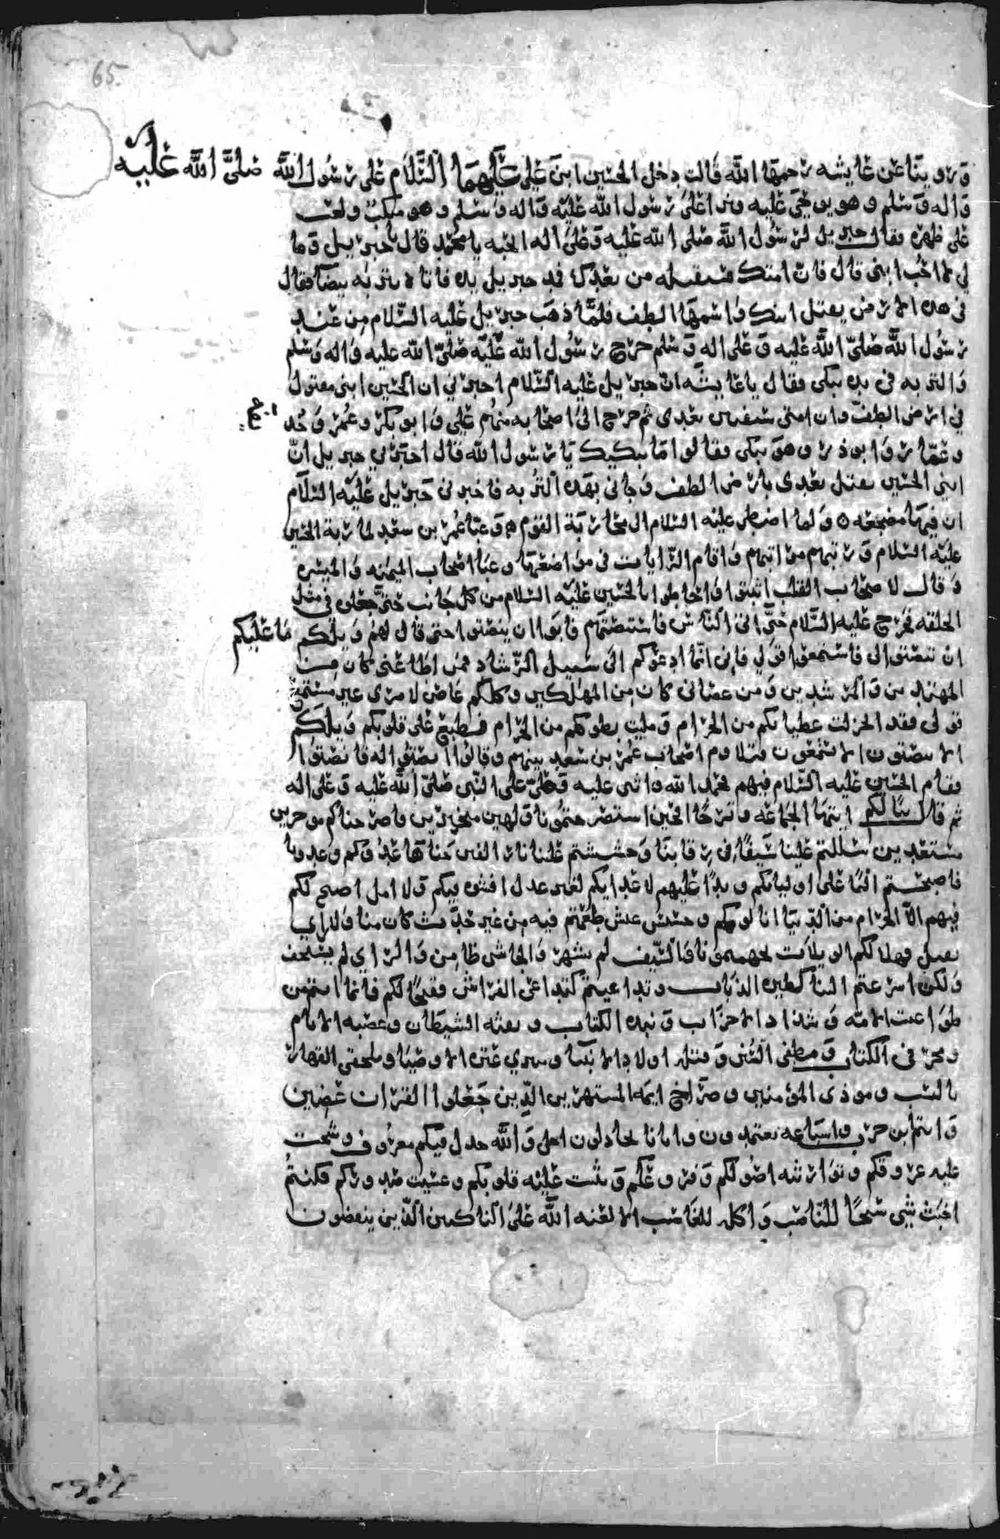 65
وروينا عن عايشه رحمها الله قالت دخل الحسين ابن علي عليهما السلام على رسول الله صلى الله عليه
واله وسلم وهو يوحى عليه فنزا على رسول الله عليه واله وسلم وهو منكب ولعب
على ظهره فقال جبريل لرسول الله صلى الله عليه وعلى اله اتحبه يا محمد قال يا جبريل وما
لي لا احب ابني قال فان امتك ستقتله من بعدك فمد جبريل يده فاتاه بتربه بيضا فقال
في هذه الارض يقتل ابنك واسمها الطف فلما ذهب جبريل عليه السلام من عند
رسول الله صلى الله عليه وعلى اله وسلم خرج رسول الله عليه صلى الله عليه واله وسلم
والتربه في يده يبكي فقال يا عايشه ان جبريل عليه السلام اخبرني ان الحسين ابني مقتول
في ارض الطف وان امتي ستفتن بعدي ثم خرج الى اصحابه منهم علي وابو بكر وعمر وحذ
وعمار وابو ذر وهو يبكي فقالوا ما يبكيك يا رسول الله قال اخبرني جبريل ان
ابني الحسين يقتل بعدي بارض الطف وجاني بهذه التربه فاخبرني جبريل عليه السلام
ان فيها مضجعه ولما اضطر عليه السلام الى محاربة القوم وعبا عمر بن سعد لمحاربة الحسين
عليه السلام ورتبهم مراتبهم واقام الرايات في مواضعها وعبا اصحاب الميمنه والميسره
وقال لاصحاب القلب اثبتوا واحاطوا بالحسين عليه السلام من كل جانب حتى جعلوه في مثل
الحلقه فخرج عليه السلام حتى اتى الناس فاستنصتهم فابوا ان ينصتوا حتى قال لهم ويلكم ما عليكم
ان تنصتوا الي فاستمعوا قولي فاني انما ادعوكم الى سبيل الرشاد فمن اطاعني كان من
المهتدين والمرشدين ومن عصاني كان من المهلكين وكلكم عاص لامري غير مستمع
قولي فقد انخزلت عطياتكم من الحرام وملئت بطونكم من الحرام فطبع على قلوبكم ويلكم
الا تنصتون الا تسمعون فتلاوم اصحاب عمر بن سعد بينهم وقالوا انصتوا له فانصتوا
فقام الحسين عليه السلام فيهم فحمد الله واثنى عليه وصلى على النبي صلى الله عليه وعلى اله
ثم قال تبا لكم ايتها الجماعه وترحا احين استصرختمونا ولهين متحيرين فاصرخناكم موجزين
مستعدين سللتم علينا سيفا في رقابنا وحششتم علينا نار الفتن جناها عدوكم وعدونا
فاصبحتم البا على اوليائكم ويدا عليهم لاعدايكم لغير عدل افشوه فيكم ولا امل اصبح لكم
فيهم الا الحرام من الدنيا انالوكم وخسيس عيش طمعتم فيه من غير حدث كان منا ولا راي
تفيل فهلا لكم الويلات تجهمتمونا والسيف لم يشهر والجاش طامن والراي لم يستحف
ولكن اسرعتم الينا كطيره الدباب وتداعيتم كتداعي الفراش فقبحا لكم فانما انتم من
طواغيت الامه وشذاذ الاحزاب ونبذه الكتاب ونفثه الشيطان وعصبه الاثام
ومحرفي الكتاب ومطفي السنن وقتله اولاد الانبيا ومبيري عتره الاوصيا وملحقي العهار
بالنسب وموذي المؤمنين وصراخ ايمه المستهزين الذين جعلوا القران عضين
وانتم ابن حرب واشياعه تعتمدون وايانا تخاذلون اجل والله خذل فيكم معروف وشجت
عليه عروقكم وتوارثته اصولكم وفروعكم وثبتت عليه قلوبكم وغشيت صدوركم فكنتم
اخبث شي سنخا للناصب واكله للغاصب الا لعنه الله على الناكثين الذين ينقضون